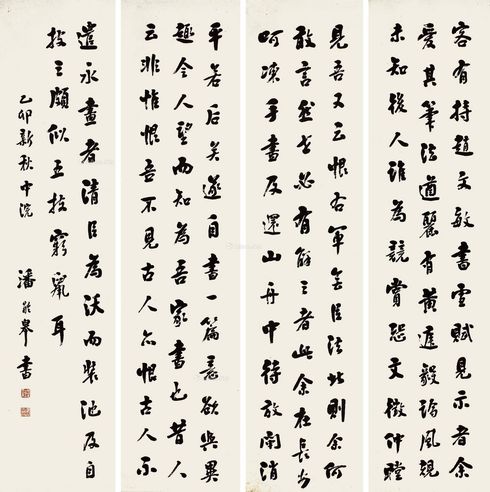 客有持趙文敏書雪賦見示者余
愛其筆法遒麗有黃庭毅論風規
未知後人誰為競賞恐文徵仲瞠
見吾又云恨右軍無臣法此則余何
敢言然世必有解之者此余在長安
呵凍手書及還山舟中待放閘消
乎若后矣遂自書一篇意欲與異
趣令人望而知為吾家書也昔人
云非惟恨吾不見古人亦恨古人不
遣永晝者清臣為沃而裝池及自
跋之頗似五技窮鼯耳
乙卯新秋中浣 潘齡皋書